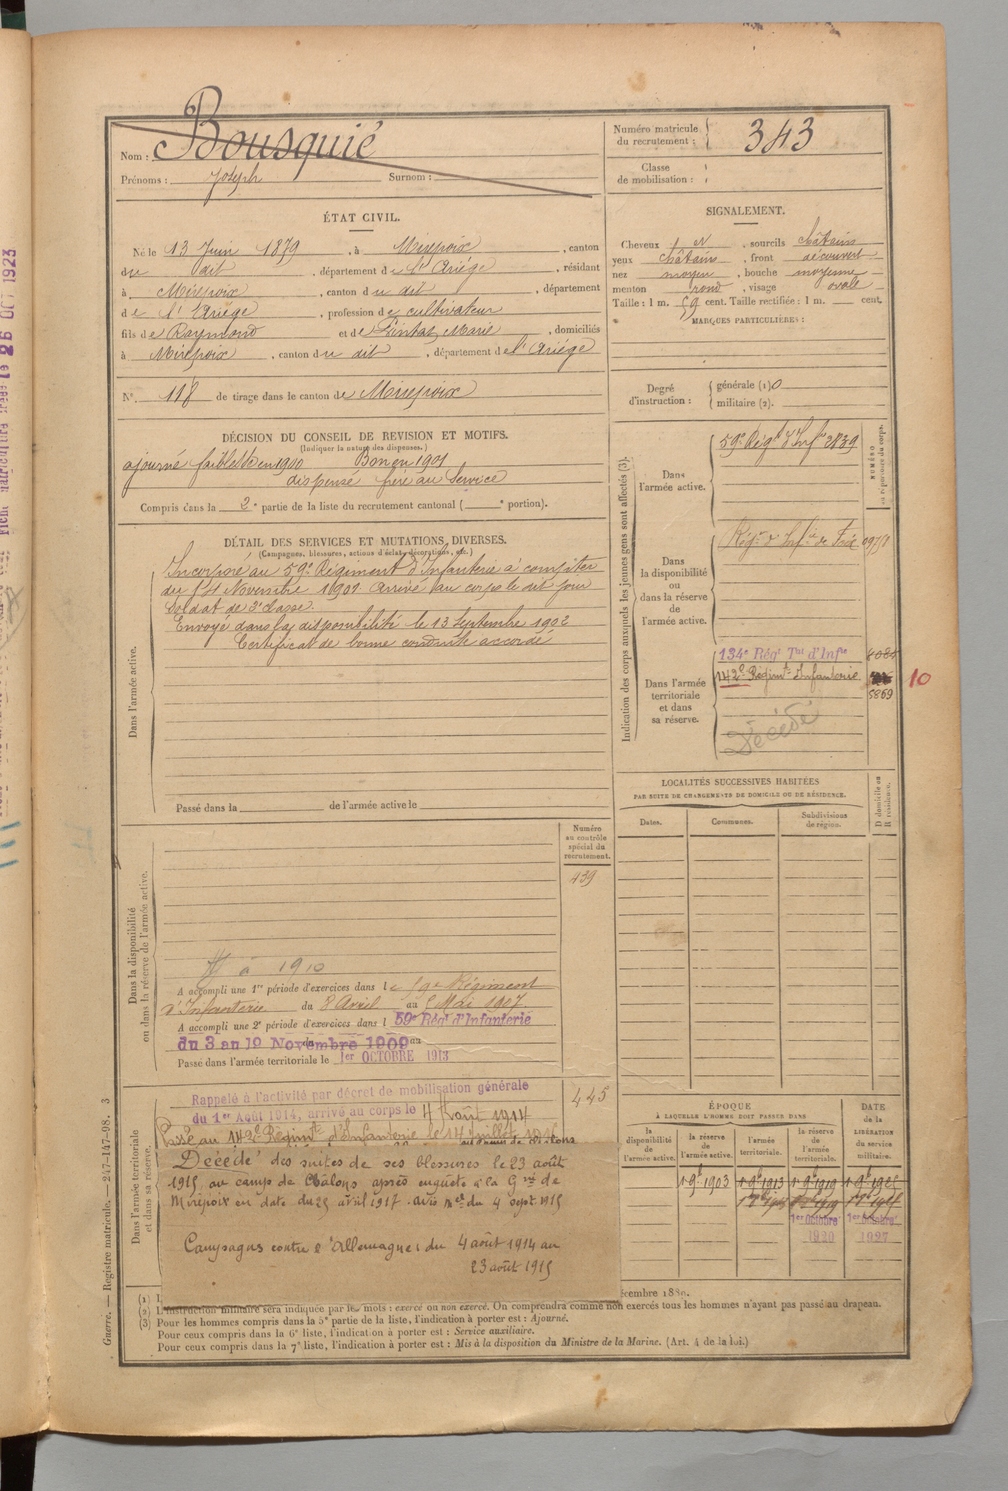 Nom : Bousquié
Prénoms : Joseph Surnom :
Numéro matricule du recrutement : 343
Classe de mobilisation :
ÉTAT CIVIL.
Né le 13 Juin 1879, à Mirepoix, canton
du dit, département de l'Ariège, résidant
à Mirepoix, canton du dit, département
de l'Ariège, profession de cultivateur
fils de Raymond et de Marie, domiciliés
à Mirepoix, canton du dit, département de l'Ariège
N° 118 de tirage dans le canton de Mirepoix
SIGNALEMENT.
Cheveux , sourcils châtains
yeux châtains, front découvert
nez moyen, bouche moyenne
menton rond, visage ovale
Taille : 1 m. 59 cent. Taille rectifiée : 1 m. cent.
MARQUES PARTICULIÈRES :
Degré d'instruction : générale (1) 0
militaire (2).
DÉCISION DU CONSEIL DE REVISION ET MOTIFS.
(Indiquer la nature des dispenses.)
ajourné faiblesse en 1900 Bon en 1901
dispensé frère au service
Compris dans la 2e partie de la liste du recrutement cantonal ( e portion).
DÉTAIL DES SERVICES ET MUTATIONS DIVERSES.
(Campagnes, blessures, actions d'éclat, décorations, etc.)
Dans l'armée active.
Incorporé au 59e Régiment d'Infanterie à compter
du Novembre 1901 Arrivé au corps le dit jour
Soldat de 2e classe.
Envoyé dans la disponibilité le 13 Septembre 1902
Certificat de bonne conduite accordé
Passé dans la de l'armée active le
Indication des corps auxquels les jeunes gens sont affectés (3).
NUMÉRO au répertoire du corps.
Dans l'armée active.
59e Régt d'Infie 2839
Dans la disponibilité ou dans la réserve de l'armée active.
Régt d'Infie de Foix
Dans l'armée territoriale et dans sa réserve.
134e Régt Tal d'Infie
142e Régimt Infanterie
5869
10
Décédé
LOCALITÉS SUCCESSIVES HABITÉES
PAR SUITE DE CHANGEMENTS DE DOMICILE OU DE RÉSIDENCE.
Dates.
Communes.
Subdivisions de région.
D domicile ou R résidence.
Dans la disponibilité ou dans la réserve de l'armée active.
Numéro au contrôle spécial du recrutement.
439
à 1910
A accompli une 1re période d'exercices dans le 59e Régiment
d'Infanterie du 8 Avril au Mai 1907
A accompli une 2e période d'exercices dans l 59e Régt d'Infanterie
du 3 au 19 Novembre 1909
Passé dans l'armée territoriale le 1er OCTOBRE 1913
Dans l'armée territoriale et dans sa réserve.
445
Rappelé à l'activité par décret de mobilisation générale
du 1er Août 1914, arrivé au corps le 4 Août 1914
Passé au 142e Régimt d'Infanterie le 14 juillet 1915
Décédé des suites de ses blessures le 23 août
1915 au camp de Chalons après enquête à la Gie de
Mirepoix en date du 25 avril 1917 avis du 4 sept 1915
Campagnes contre l'Allemagne : du 4 août 1914 au
23 août 1915
ÉPOQUE
À LAQUELLE L'HOMME DOIT PASSER DANS
la disponibilité de l'armée active.
la réserve de l'armée active.
l'armée territoriale.
la réserve de l'armée territoriale.
DATE de la LIBÉRATION du service militaire.
1903
1913
1919
1er Octobre 1920
1er Octobre 1927
(1)
(2) L'instruction militaire sera indiquée par les mots : exercé ou non exercé. On comprendra comme non exercés tous les hommes n'ayant pas passé au drapeau.
(3) Pour les hommes compris dans la 5e partie de la liste, l'indication à porter est : Ajourné.
Pour ceux compris dans la 6e liste, l'indication à porter est : Service auxiliaire.
Pour ceux compris dans la 7e liste, l'indication à porter est : Mis à la disposition du Ministre de la Marine. (Art. 4 de la loi.)
Guerre. — Registre matricule. — 247-147-98. 3
26 OCT 1923